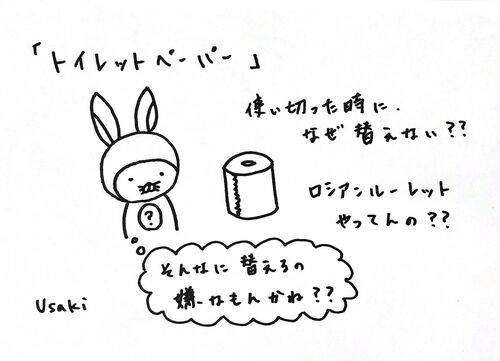 「トイレットペーパー」
使い切った時に、
なぜ替えない??
ロシアンルーレット
やってんの??
?
そんなに替えるの
嫌なもんかね??
Usaki